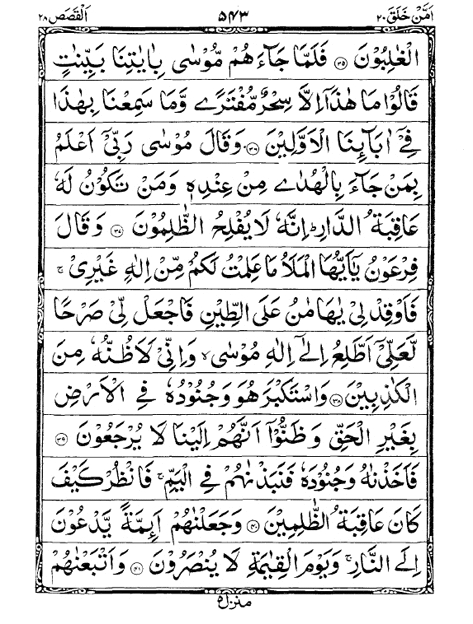 اَمَّنۡ خَلَقَ ۲۰ ۵۴۳ اَلۡقَصَص ۲۸
الۡغٰلِبُوۡنَ ﴿۳۵﴾ فَلَمَّا جَآءَهُمۡ مُّوۡسٰى بِاٰيٰتِنَا بَيِّنٰتٍ
قَالُوۡا مَا هٰذَاۤ اِلَّا سِحۡرٌ مُّفۡتَرًى وَّمَا سَمِعۡنَا بِهٰذَا
فِىۡۤ اٰبَآئِنَا الۡاَوَّلِيۡنَ ﴿۳۶﴾ وَقَالَ مُوۡسٰى رَبِّىۡۤ اَعۡلَمُ
بِمَنۡ جَآءَ بِالۡهُدٰى مِنۡ عِنۡدِهٖ وَمَنۡ تَكُوۡنُ لَهٗ
عَاقِبَةُ الدَّارِ‌ؕ اِنَّهٗ لَا يُفۡلِحُ الظّٰلِمُوۡنَ ﴿۳۷﴾ وَقَالَ
فِرۡعَوۡنُ يٰۤاَيُّهَا الۡمَلَاُ مَا عَلِمۡتُ لَكُمۡ مِّنۡ اِلٰهٍ غَيۡرِىۡ‌ۚ
فَاَوۡقِدۡ لِىۡ يٰهَامٰنُ عَلَى الطِّيۡنِ فَاجۡعَلْ لِّىۡ صَرۡحًا
لَّعَلِّىۡۤ اَطَّلِعُ اِلٰٓى اِلٰهِ مُوۡسٰىۙ وَاِنِّىۡ لَاَظُنُّهٗ مِنَ
الۡكٰذِبِيۡنَ ﴿۳۸﴾ وَاسۡتَكۡبَرَ هُوَ وَجُنُوۡدُهٗ فِى الۡاَرۡضِ
بِغَيۡرِ الۡحَـقِّ وَظَنُّوۡۤا اَنَّهُمۡ اِلَيۡنَا لَا يُرۡجَعُوۡنَ ﴿۳۹﴾
فَاَخَذۡنٰهُ وَجُنُوۡدَهٗ فَنَبَذۡنٰهُمۡ فِى الۡيَمِّ‌ۚ فَانْظُرۡ كَيۡفَ
كَانَ عَاقِبَةُ الظّٰلِمِيۡنَ ﴿۴۰﴾ وَجَعَلۡنٰهُمۡ اَئِمَّةً يَّدۡعُوۡنَ
اِلَى النَّارِ‌ۚ وَيَوۡمَ الۡقِيٰمَةِ لَا يُنۡصَرُوۡنَ ﴿۴۱﴾ وَاَتۡبَعۡنٰهُمۡ
منزل۵